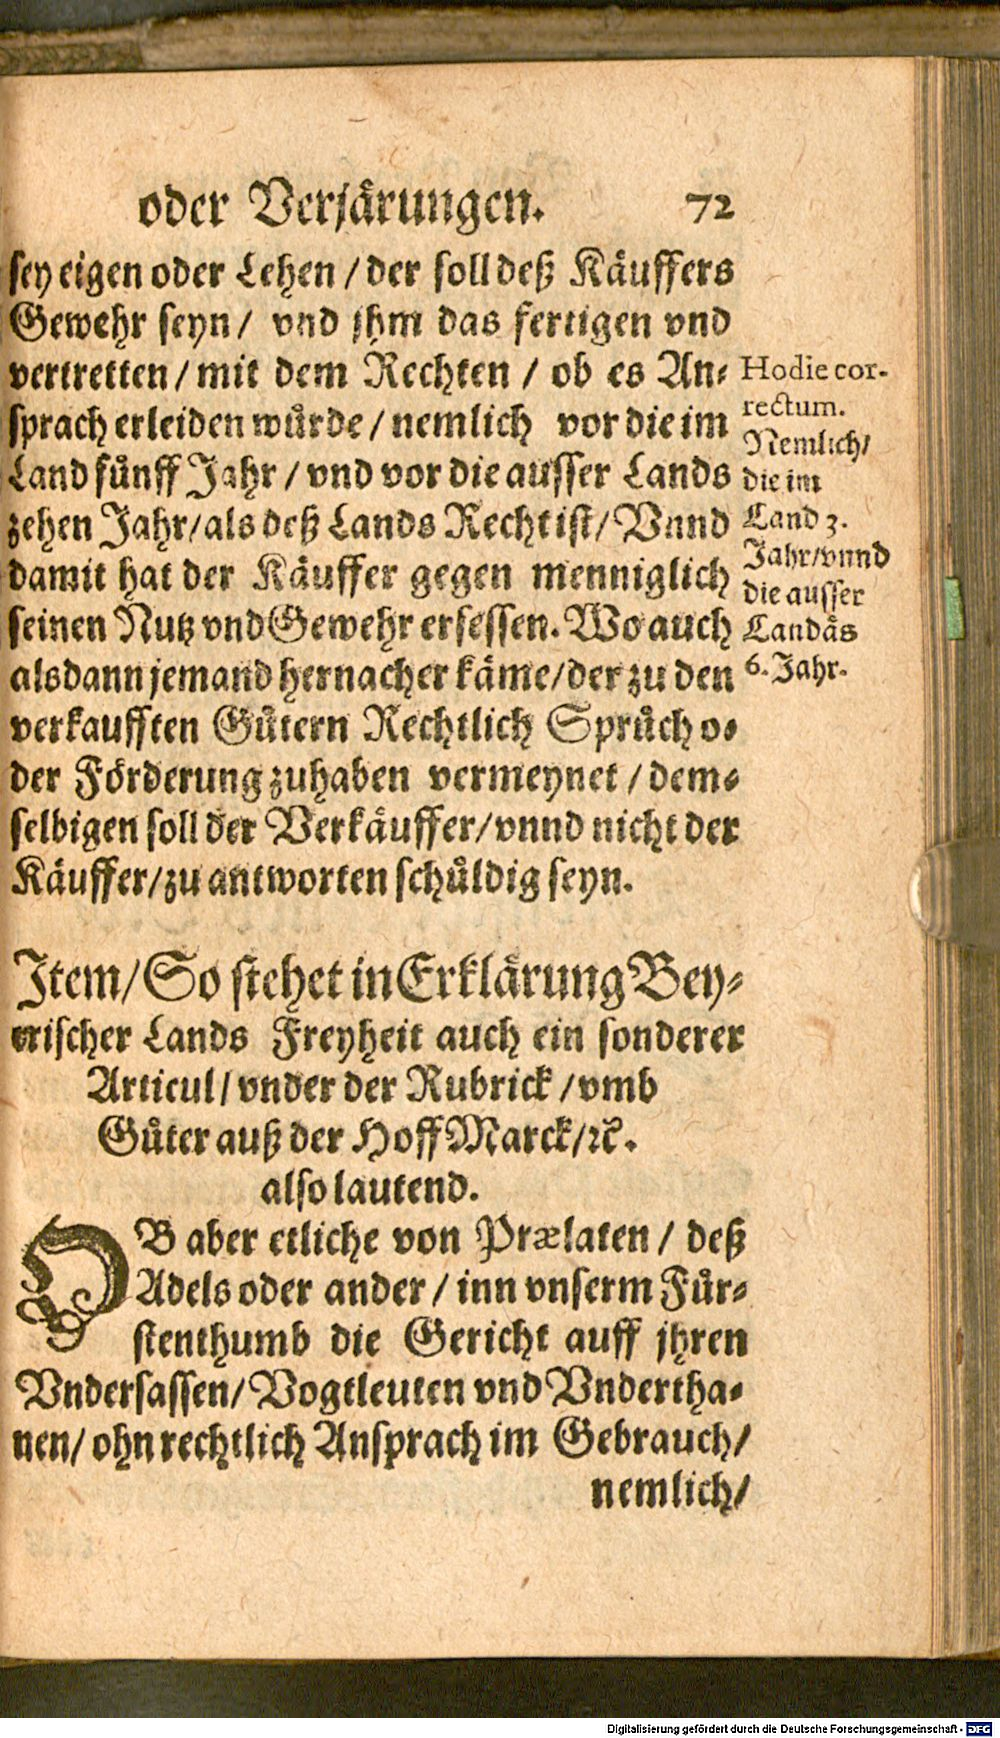 oder Verjärungen. 72
sey eigen oder Lehen / der soll deß Käuffers
Gewehr seyn / vnd jhm das fertigen vnd
vertretten / mit dem Rechten / ob es An⸗
sprach erleiden wuͤrde / nemlich vor die im
Land fuͤnff Jahr / vnd vor die ausser Lands
zehen Jahr / als deß Lands Recht ist / Vnnd
damit hat der Käuffer gegen menniglich
seinen Nutz vnd Gewehr ersessen. Wo auch
alsdann jemand hernacher käme / der zu den
verkaufften Guͤtern Rechtlich Spruͤch o⸗
der Förderung zuhaben vermeynet / dem⸗
selbigen soll der Verkäuffer / vnnd nicht der
Käuffer / zu antworten schuͤldig seyn.
Hodie cor-
rectum.
Nemlich /
die im
Land 3.
Jahr / vnnd
die ausser
Landäs
6. Jahr.
Item / So stehet in Erklärung Bey⸗
erischer Lands Freyheit auch ein sonderer
Articul / vnder der Rubrick / vmb
Guͤter auß der Hoff Marck / ꝛc.
also lautend.
OB aber etliche von Prælaten / deß
Adels oder ander / inn vnserm Fuͤr⸗
stenthumb die Gericht auff jhren
Vndersassen / Vogtleuten vnd Vndertha⸗
nen / ohn rechtlich Ansprach im Gebrauch /
nemlich /
Digitalisierung gefördert durch die Deutsche Forschungsgemeinschaft - DFG